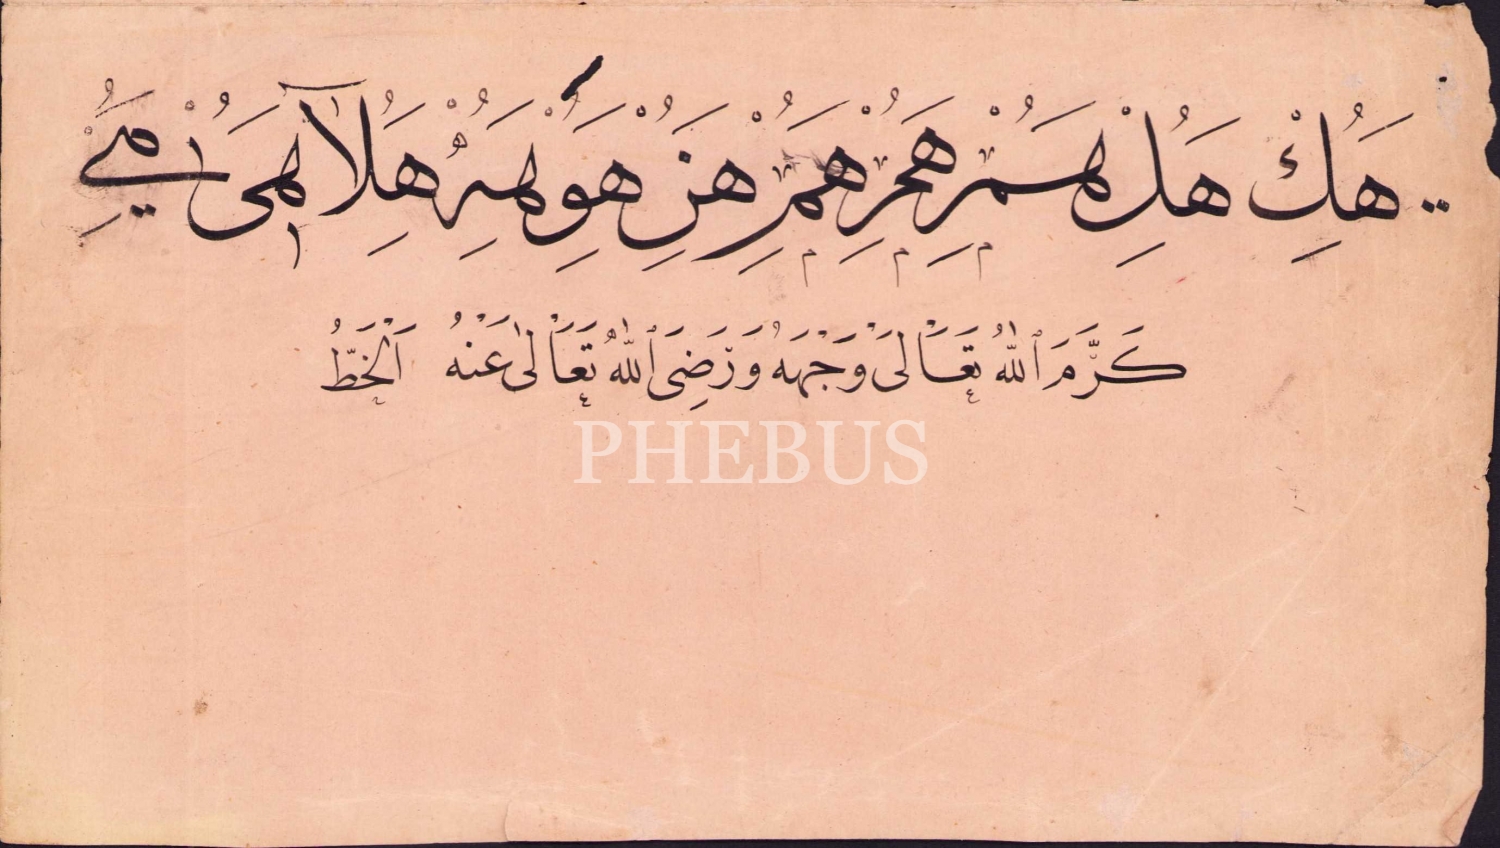 هَُِكْ هَُِلْ هَُِمْ هَُِمْ هَُِمْ هَُِنْ هَُِوْ هَُِهْ هَُِلَا هَُِىْ
كَرَّمَ ٱللّٰهُ تَعَالَىٰ وَجْهَهُ وَرَضِىَ ٱللّٰهُ تَعَالٰى عَنْهُ اَلْخَطُّ
PHEBUS